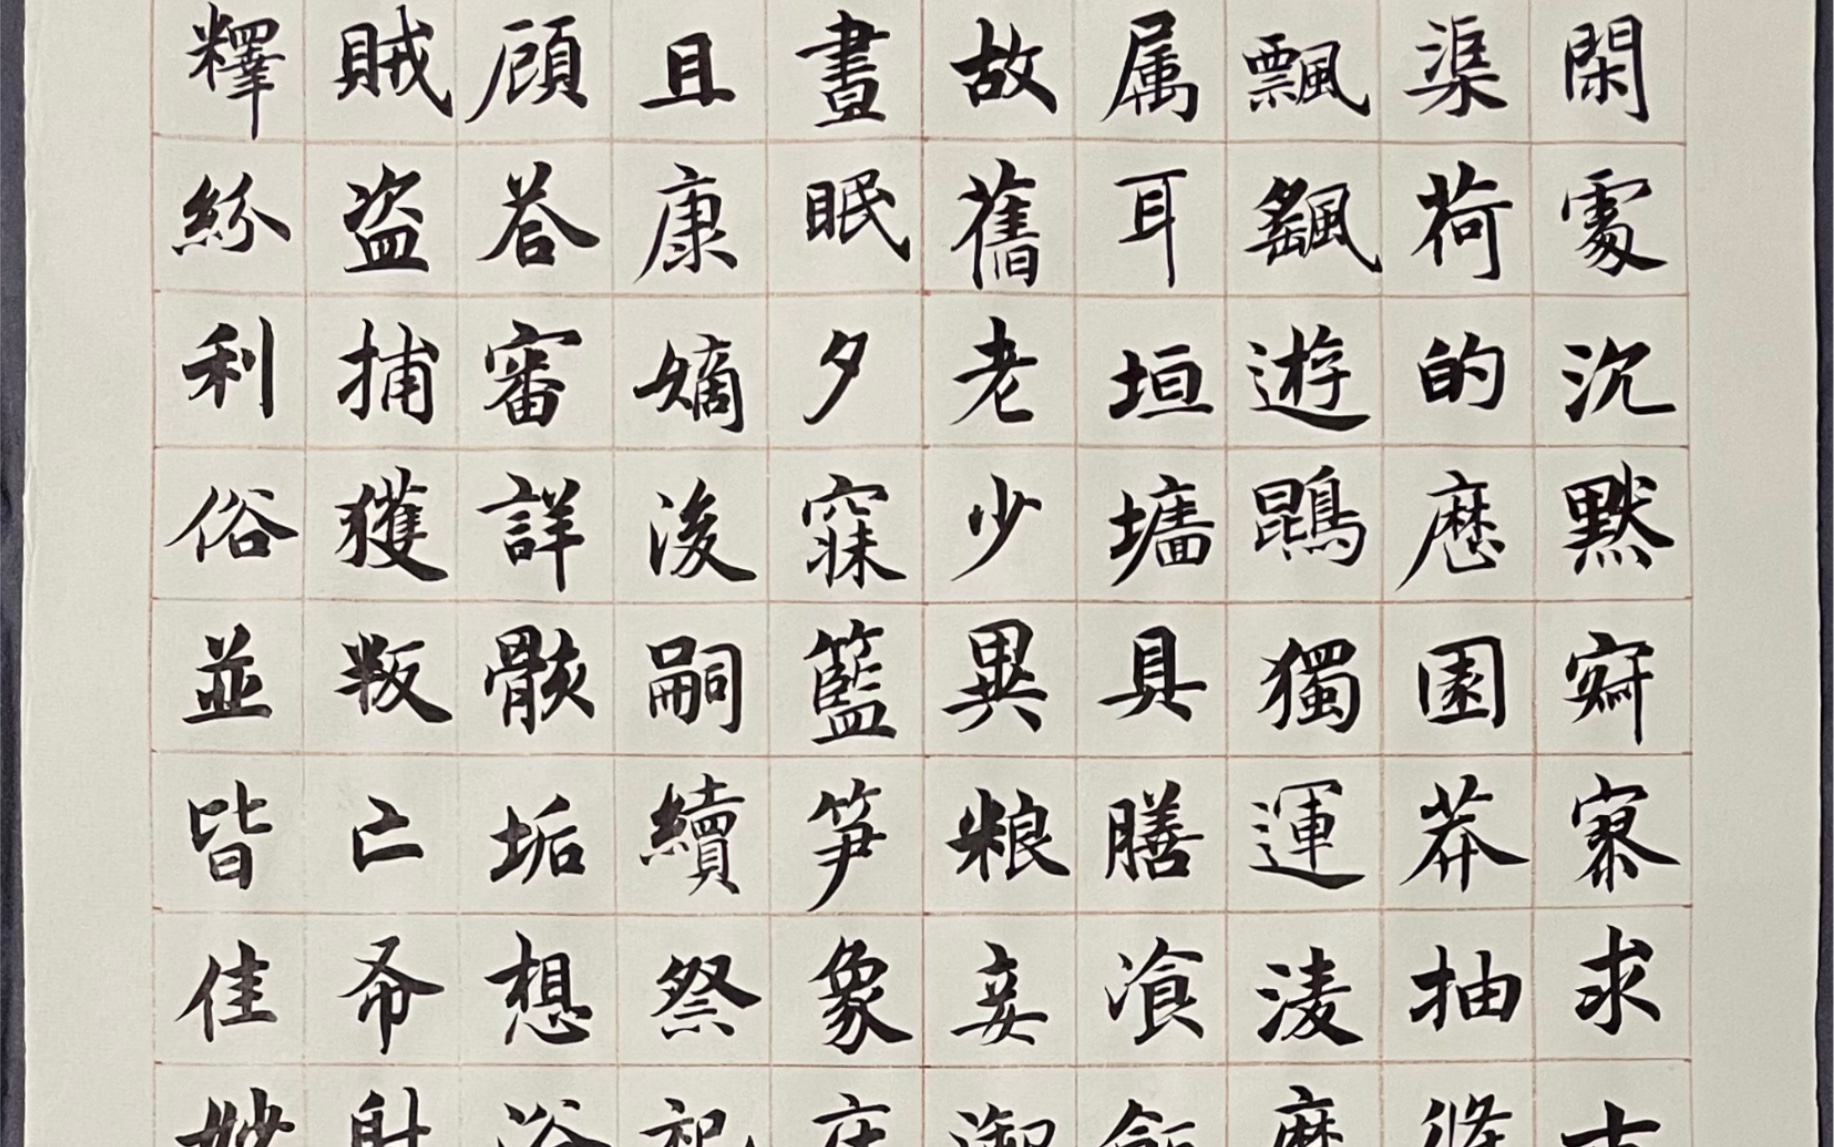 閑處沉黙寂寥求古
渠荷的歷園莽抽條
飄颻遊鵾獨運凌摩
属耳垣墻具膳飡飯
故舊老少異粮妾御
晝眠夕寐籃笋象床
且康嫡後嗣續祭祀
顧荅審詳骸垢想浴
賊盗捕獲叛亡布射
釋紛利俗並皆佳妙